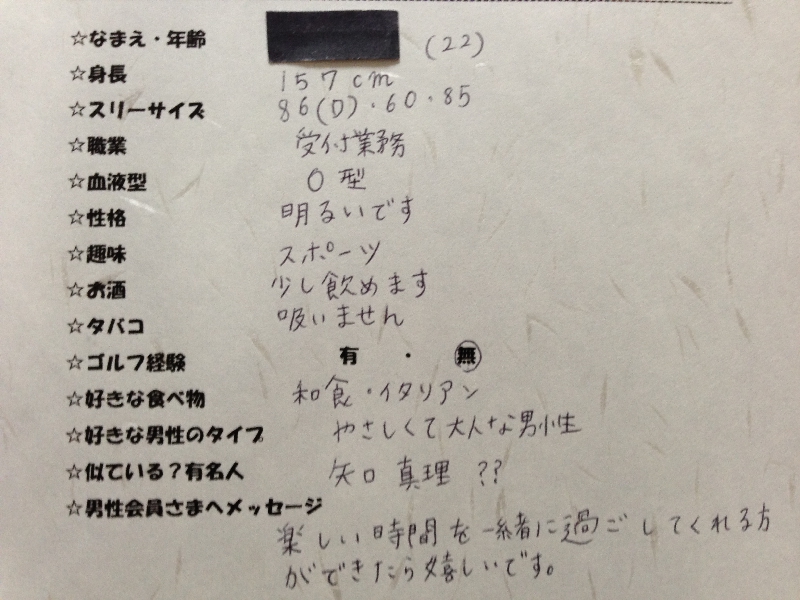 ☆なまえ・年齢 (22)
☆身長 157cm
☆スリーサイズ 86(D)・60・85
☆職業 受付業務
☆血液型 O型
☆性格 明るいです
☆趣味 スポーツ
☆お酒 少し飲めます
☆タバコ 吸いません
☆ゴルフ経験 有・無
☆好きな食べ物 和食・イタリアン
☆好きな男性のタイプ やさしくて大人な男性
☆似ている?有名人 矢口真理??
☆男性会員さまへメッセージ
楽しい時間を一緒に過ごしてくれる方
ができたら嬉しいです。